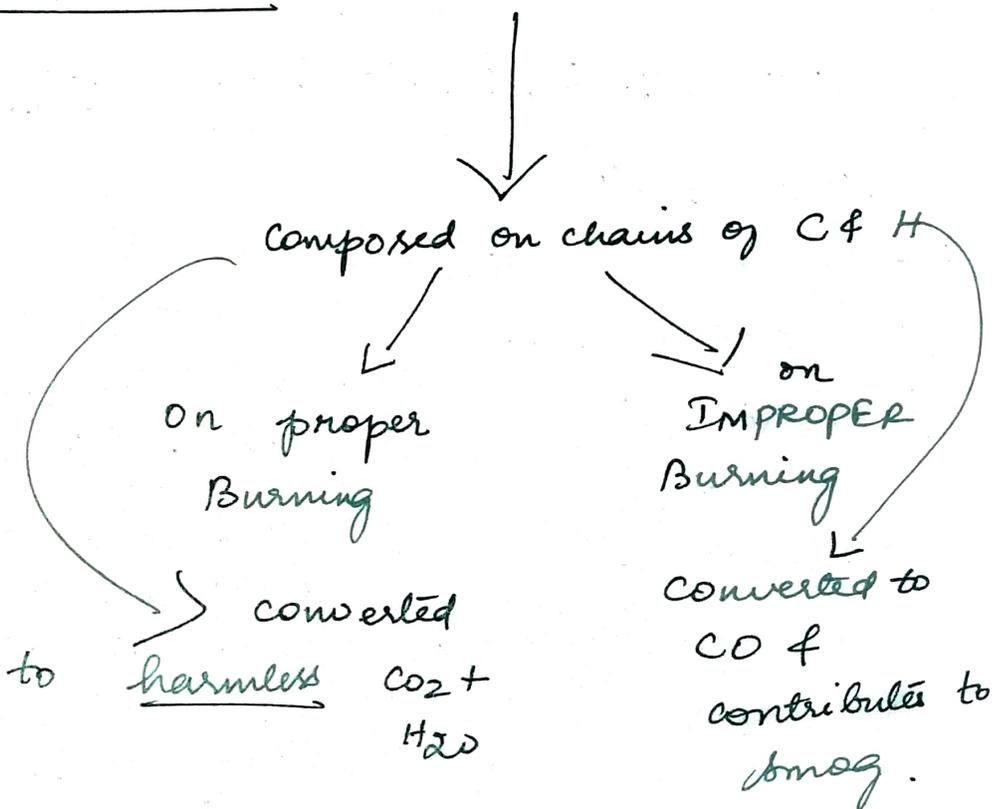 composed on chains of C & H
On proper
Burning
converted
to harmless CO2 +
H2O
on
IMPROPER
Burning
converted to
CO &
contributes to
smog.